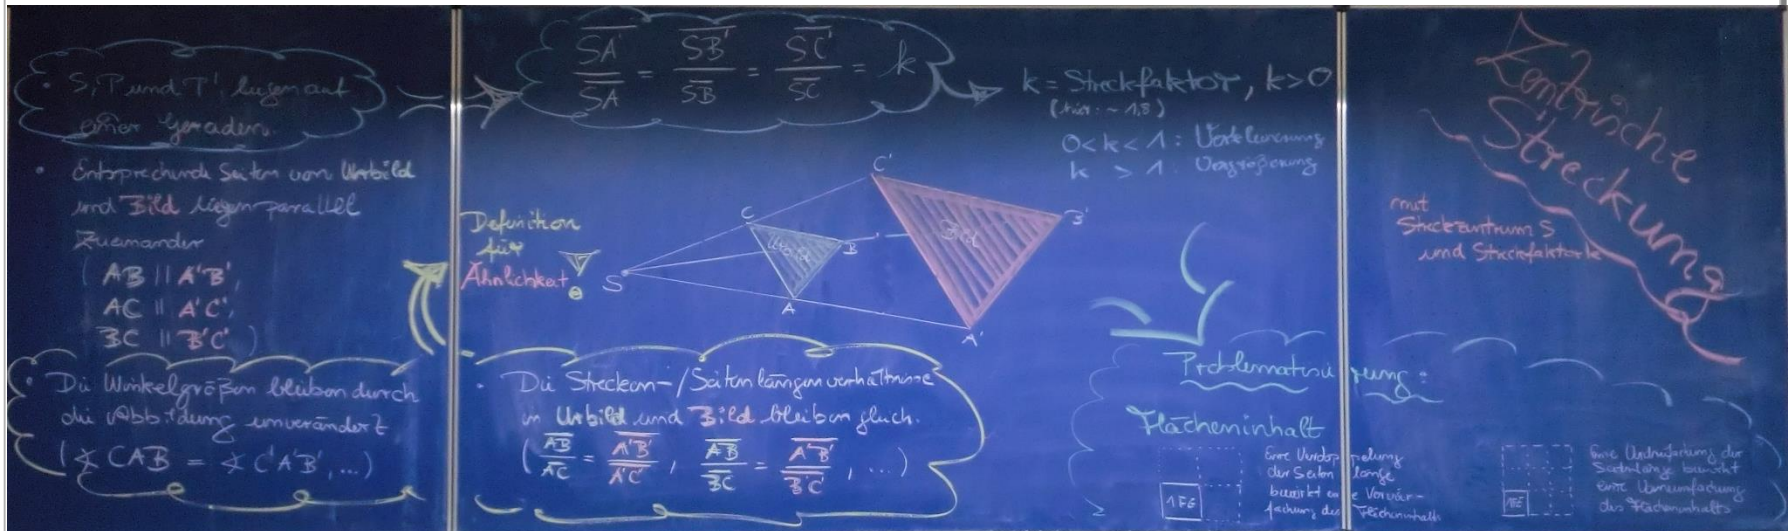 • S, P und P' liegen auf
einer Geraden.
• Entsprechende Seiten von Urbild
und Bild liegen parallel
zueinander
( AB || A'B',
AC || A'C',
BC || B'C' )
• Die Winkelgrößen bleiben durch
die Abbildung unverändert
(∡ CAB = ∡ C'A'B', ...)
SA'/SA = SB'/SB = SC'/SC = k
k = Streckfaktor, k>0
(hier: ~ 1,8)
0<k<1: Verkleinerung
k > 1: Vergrößerung
Definition
für
Ähnlichkeit
S
C
B
A
Urbild
C'
B'
A'
Bild
• Die Strecken-/Seitenlängenverhältnisse
in Urbild und Bild bleiben gleich.
(AB/AC = A'B'/A'C', AB/BC = A'B'/B'C', ...)
Zentrische
Streckung
mit
Streckzentrum S
und Streckfaktor k
Problematisierung:
Flächeninhalt
1FE
Eine Verdoppelung
der Seitenlänge
bewirkt eine Vervier-
fachung des Flächeninhalts
1FE
Eine Verdreifachung der
Seitenlänge bewirkt
eine Verneunfachung
des Flächeninhalts